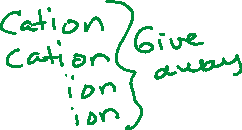 Cation
cation
ion
ion
Give
away